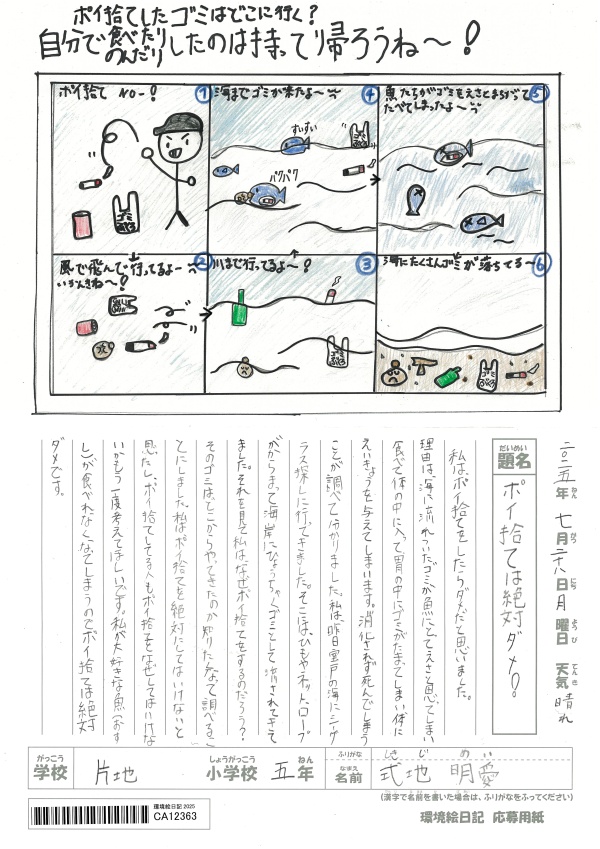 ポイ捨てしたゴミはどこに行く?
自分で食べたりのんだりしたのは持って帰ろうね〜!
ポイ捨て NO-!
①
風で飛んで行ってるよー
いろんさね〜!
②
川まで行ってるよ〜!
③
海までゴミが来たよ〜
④
すいすい
パクパク
魚たちがゴミをえさとまちがって
たべてしまったよ〜
⑤
海にたくさんゴミが落ちてる〜
⑥
二〇二五年 七月二十八日 月曜日 天気 晴れ
ねん がつ にち ようび てんき
だいめい
題名 ポイ捨ては絶対ダメ!
私は、ポイ捨てをしたらダメだと思いました。
理由は、海に流れついたゴミが魚にとてえさと思ってしまい
食べて体の中に入って胃の中にゴミがたまってしまい体に
えいきょうを与えてしまいます。消化されず死んでしまう
ことが調べて分かりました。私は昨日室戸の海にシーグ
ラス探しに行ってきました。そこには、ひもやネット、ロープ
がからまって海岸にひょうちゃくゴミとして流されてきて
ました。それを見て私は、なぜポイ捨てをするのだろう?
そのゴミは、どこからやってきたのか知りたくなって調べるこ
とにしました。私はポイ捨てを絶対にしてはいけないと
思たしポイ捨てしてる人もポイ捨てをなぜしてはいけな
いかもう一度考えてほしいです。私が大好きな魚(おす
し)が食べれなくなってしまうのでポイ捨ては絶対
ダメです。
がっこう
学校 片地
しょうがっこう
小学校 五年
ねん
ふりがな しきじ めい
なまえ
名前 式地 明愛
(漢字で名前を書いた場合は、ふりがなをふってください)
環境絵日記 2025
CA12363
環境絵日記 応募用紙